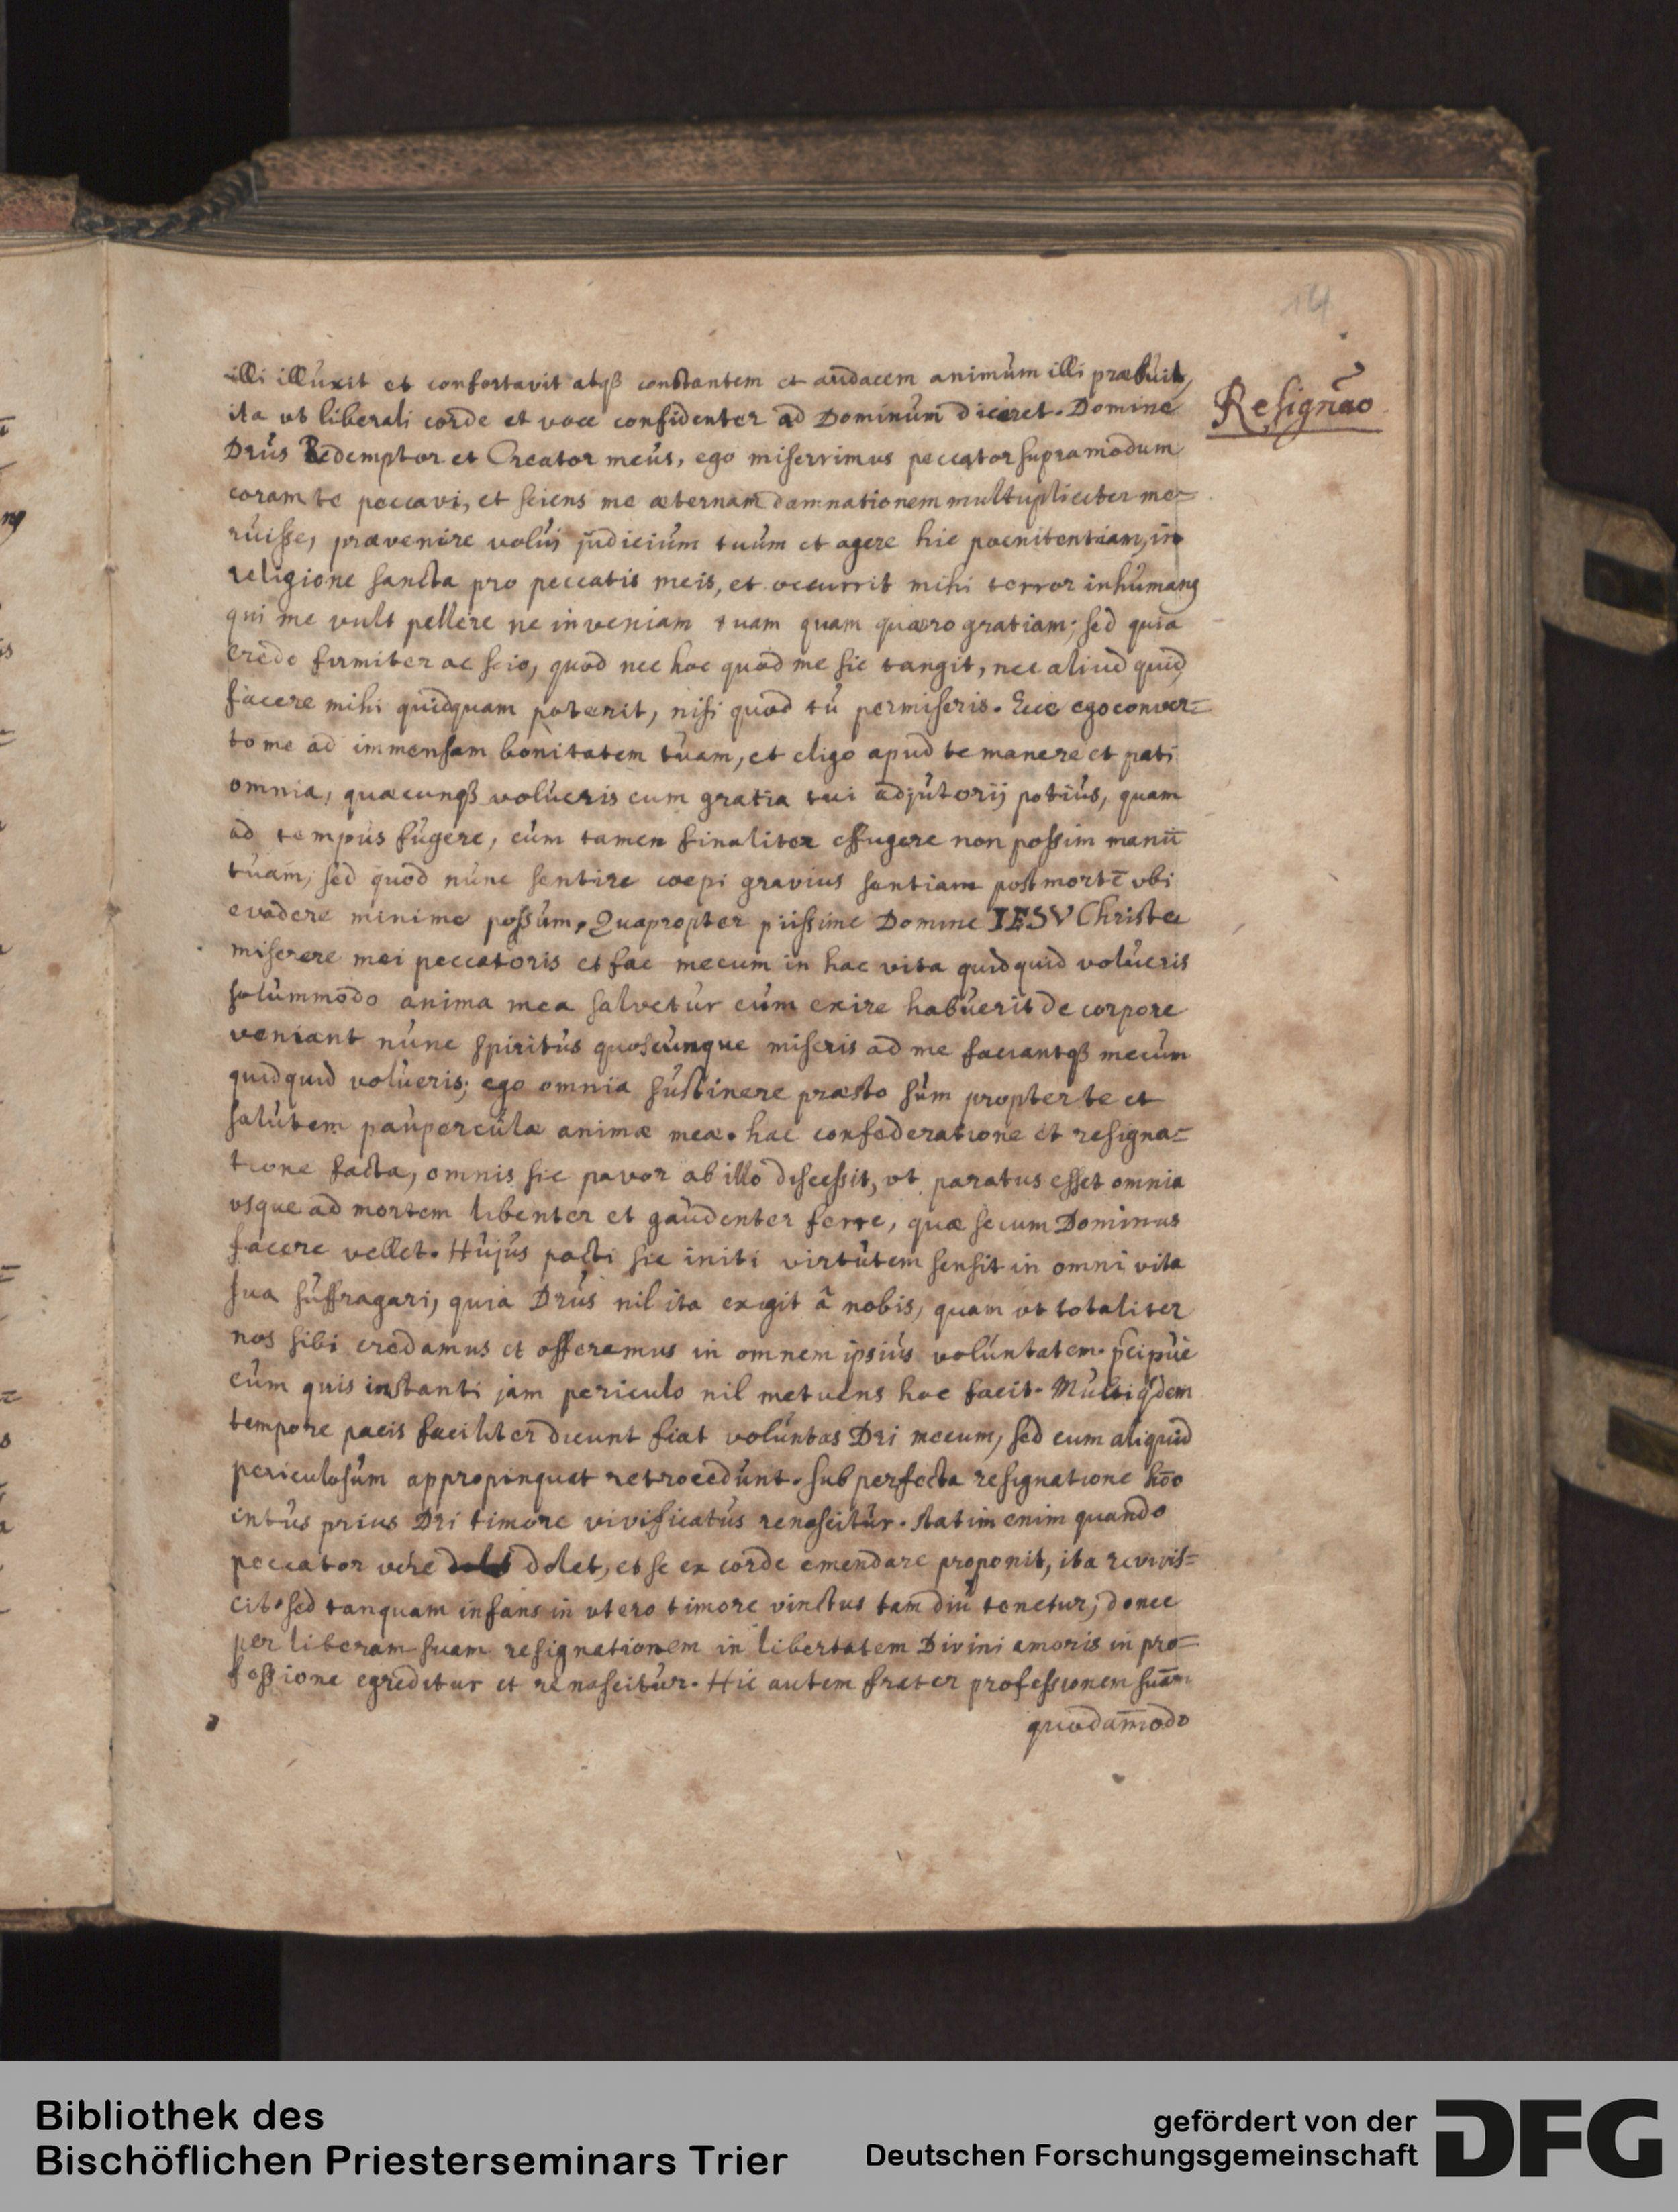 14
illi illuxit et confortavit atqꝫ constantem et audacem animum illi præbuit,
ita ut liberali corde et voce confidenter ad Dominum diceret. Domine
Resignão
Deus Redemptor et Creator meus, ego miserrimus peccator supra modum
coram te peccavi, et sciens me æternam damnationem multupliciter me=
ruisse, prævenire volui judicium tuum et agere hic poenitentiam, in
religione sancta pro peccatis meis, et occurrit mihi terror inhumanꝯ
qui me vult pellere ne inveniam tuam quam quæro gratiam; sed quia
crede firmiter ac scio, quod nec hoc quod me sic tangit, nec aliud quid
facere mihi quidquam poterit, nisi quod tu permiseris. Ecce ego conver=
to me ad immensam bonitatem tuam, et eligo apud te manere et pati
omnia, quæcunqꝫ volueris cum gratia tui adjutorij potius, quam
ad tempus fugere, cum tamen finaliter effugere non possim manū
tuam; sed quod nunc sentire coepi gravius sentiam post mortē ubi
evadere minime possum. Quapropter piissime Domine IESV Christe
miserere mei peccatoris et fac mecum in hac vita quidquid volueris
solummodo anima mea salvetur cum exire habuerit de corpore
veniant nunc spiritus quoscunque miseris ad me faciantqꝫ mecum
quidquid volueris; ego omnia sustinere præsto sum propter te et
salutem paupercula animæ meæ. hac confederatione et resigna=
tione facta, omnis sic pavor ab illo discessit, ut paratus esset omnia
usque ad mortem libenter et gaudenter ferre, quæ secum Dominus
facere vellet. Hujus pacti sic initi virtutem sensit in omni vita
sua suffragari, quia Deus nil ita exigit â nobis, quam ut totaliter
nos sibi credamus et offeramus in omnem ipsius voluntatem. p̄cipue
cum quis instanti jam periculo nil metuens hoc facit. Multi q̃dem
tempore pacis faciliter dicunt fiat voluntas Dei mecum, sed cum aliquid
periculosum appropinquat retrocedunt. sub perfecta resignatione hōo
intus prius Dei timore vivificatus renascitur. statim enim quando
peccator vere dolet, et se ex corde emendare proponit, ita revivis=
cit. sed tanquam infans in utero timore vinctus tam diu tenetur, donec
per liberam suam resignationem in libertatem Divini amoris in pro=
fessione egreditur et renascitur. Hic autem frater professionem suam
quodam̄odo
Bibliothek des
Bischöflichen Priesterseminars Trier
gefördert von der
Deutschen Forschungsgemeinschaft
DFG